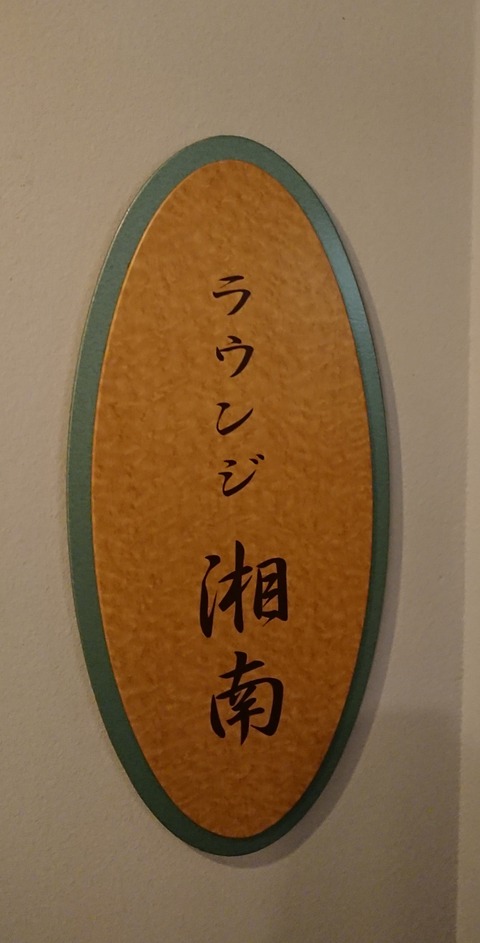 ラウンジ 湘南